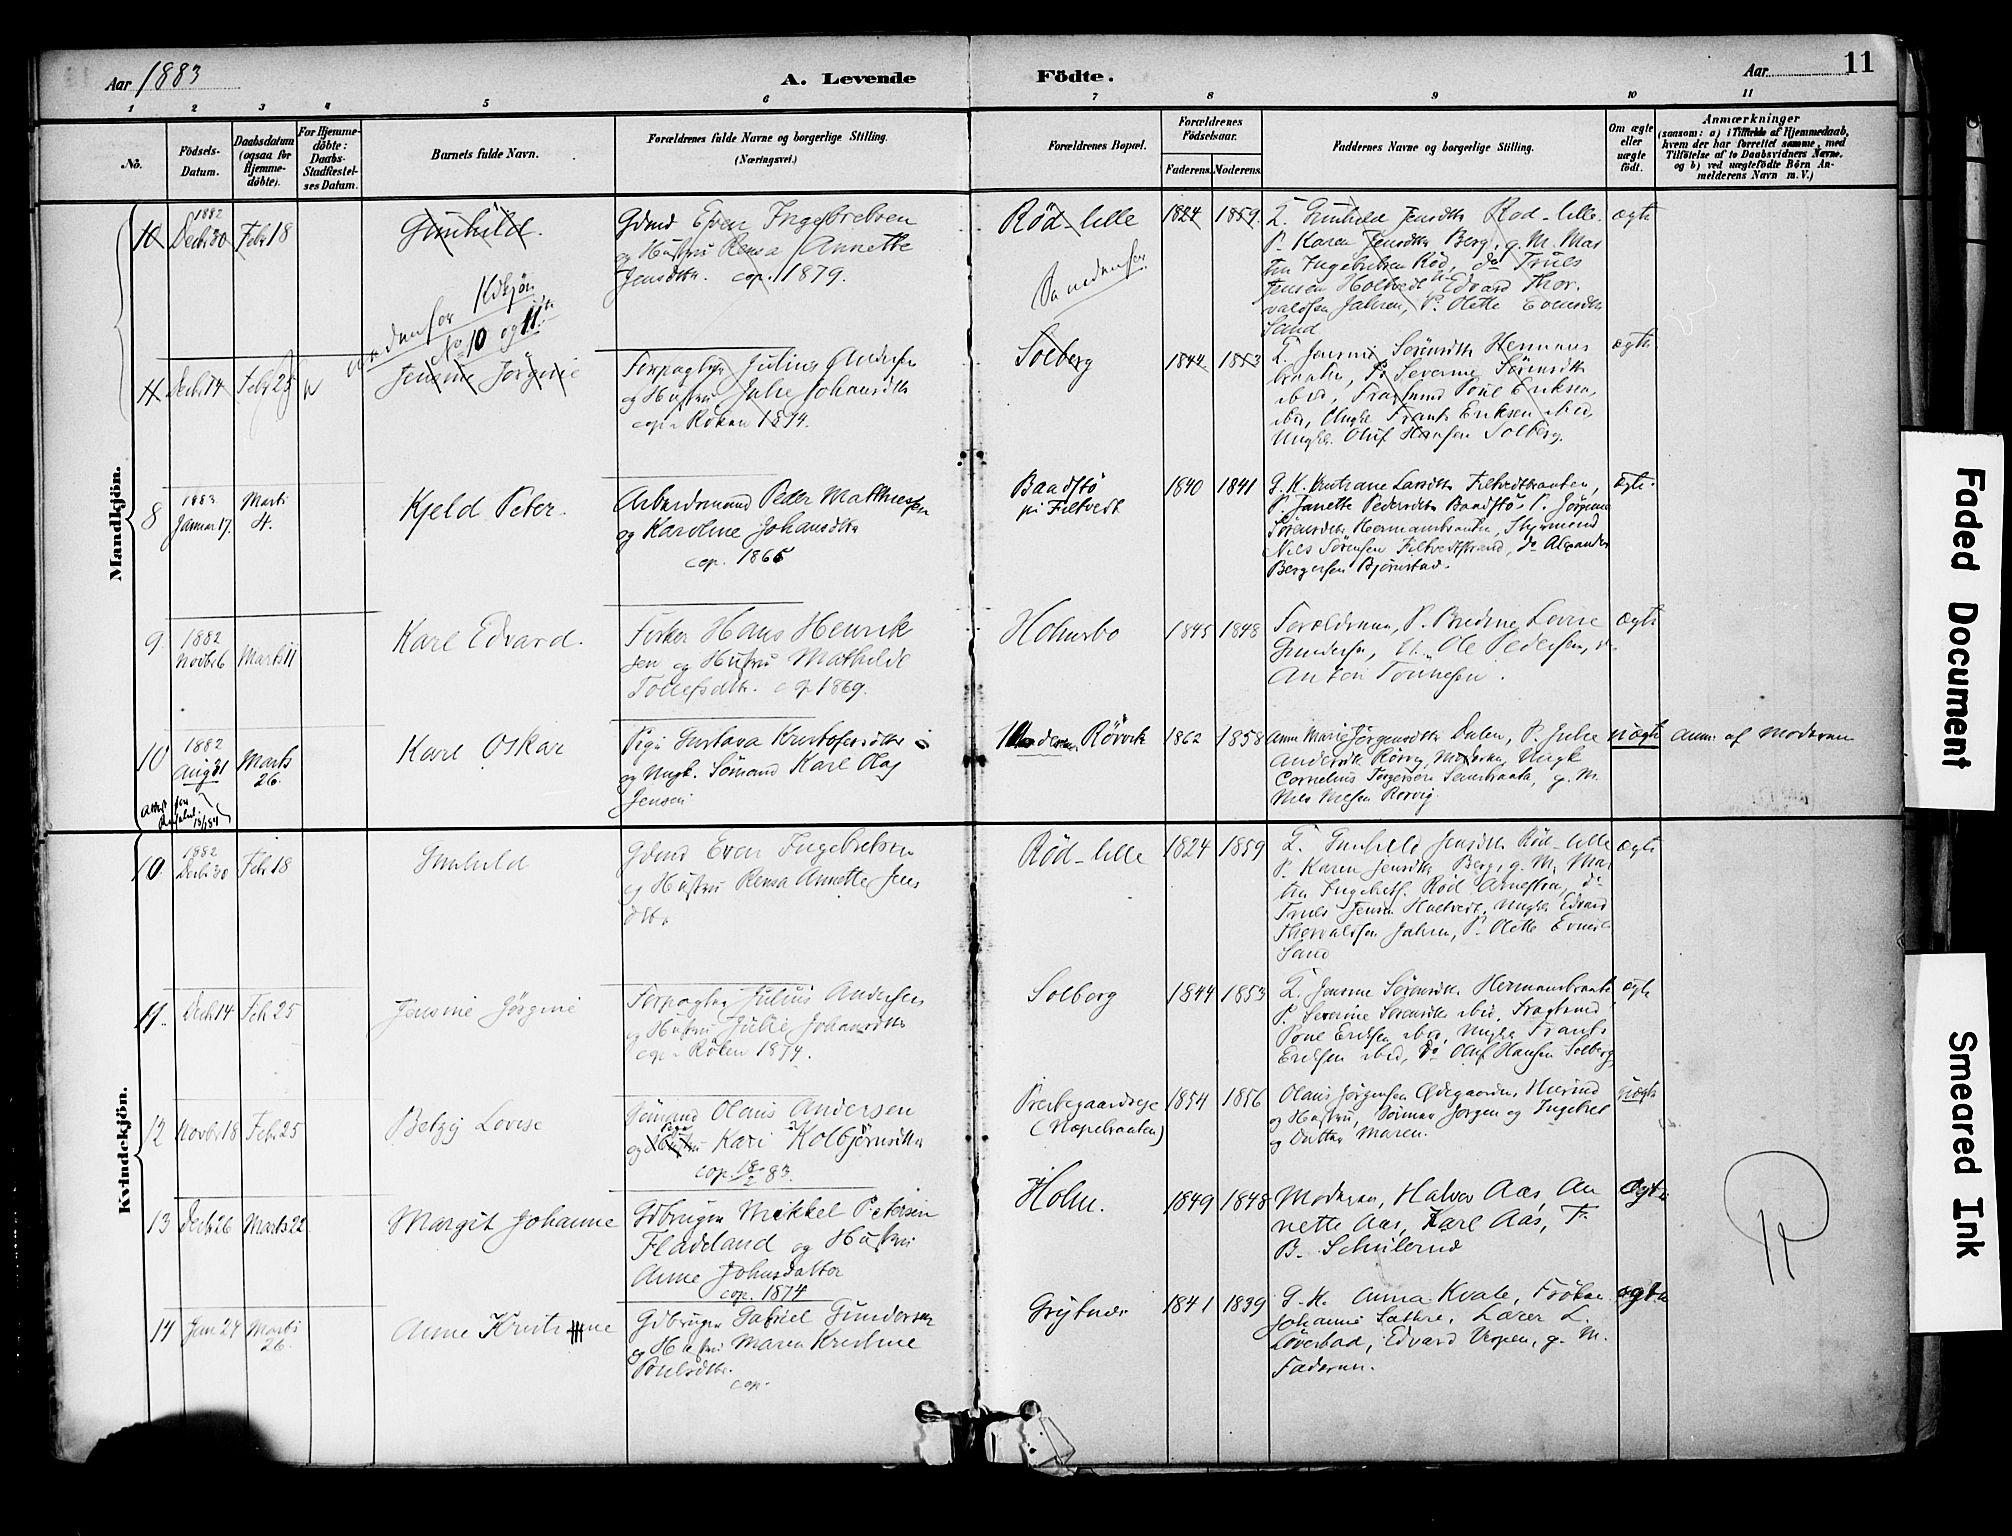 Aar 1883
A. Levende
Födte.
Aar
11
1 2 3 4 5 6 7 8 9 10 11
No.
Födsels-
Datum.
Daabsdatum
(ogsaa for
Hjemme-
döbte).
For Hjemme-
döbte:
Daabs-
Stadfæstel-
ses Datum.
Barnets fulde Navn.
Forældrenes fulde Navne og borgerlige Stilling.
(Næringsvei.)
Forældrenes Bopæl.
Forældrenes
Födselsaar.
Faderens. Moderens.
Faddernes Navne og borgerlige Stilling.
Om ægte
eller
uægte
født.
Anmærkninger
(saasom: a) i Tilfælde af Hjemmedaab,
hvem der har forrettet samme, med
Tilföielse af to Daabsvidners Navne,
og b) ved uægtefödte Börn An-
melderens Navn m. V.)
Mandkjön.
10
1882
Decbr 30
Febr 18
Gunhild.
Gdmd Even Ingebretsen
og Hustru Rensa Annette
Jensdtr. cop. 1879.
Rød lille
1824
1859.
Gunhild Jensdtr Rød lille
P. Karen Jensdtr Berg, g. M. Mar
tin Ingebretsen Rød, do Truls
Jensen Holtvedt, Edvard Thor
valdsen Jahren, P. Olette Evensdtr
Sand
ægte
nedenfor Kvkjön
No 10 og 11
11
Decbr 14
Febr 25
Jensine Jørgine
Forpagter Julius Andersen
og Hustru Julie Johansdtr
cop. i Røken 1874.
Solberg
1844
1853
Jensine Sørensdtr Hermans
braaten, P. Severine Sørensdtr
ibid, Fragtmd Poul Eriksen
ibid, Ungk. Frants Eriksen ibid,
Ungk. Oluf Hansen Solberg.
ægte
8
1883
Januar 17.
Marts
4.
Kjeld Peter.
Arbeidsmand Peder Mathiesen
og Karoline Johansdtr
cop. 1865
Baadstø
pr Filtvedt
1840
1841
G. K. Larsdtr Filtvedtbraaten,
P. Janette Pedersdtr Baadstø, P. Jørgine
Sørensdtr Hermansbraaten, Styrmand
Nils Sørensen Filtvedtstrand, do Alexander
Bergersen Bjørnstad.
ægte.
9
1882
Novbr 6
Marts 11
Karl Edvard.
Fisker Hans Henrik
sen og Hustru Mathilde
Tollefsdtr. cop 1869.
Holmsbo
1845
1848
Forældrene, P. Bredine Lovise
Gundersen, U. Ole Pedersen, do
Anton Tønnesen.
ægte
10
1882
Aug 31
Marts
26
Karl Oskar
Pige Gustava Kristofersdtr
og Ungk. Sømand Karl Olaf
Jensen
Moderen: Rørvik
1862
1858
Anne Marie Jørgensdtr Dalen, P. Julie
Andersdtr Rørvig, Moderen, Ungk
Cornelius Torgersen, g. M.
Nils Nilsen Rørvig.
uægte
Anm: af Moderen
Kvindekjön.
10.
1882
Decbr 30
Febr 18
Gunhild
Gdmd Even Ingebretsen
og Hustru Rensa Annette Jens
dtr.
Rød lille
1824
1859
Gunhild Jensdtr Rød lille
P. Karen Jensdtr Berg, g. M. Mar
tin Ingebrets. Rød, do
Truls Jensen Holtvedt, Ungk. Edvard
Thorvaldsen Jahren, P. Olette Evensd.
Sand
ægte
11.
Decbr 14
Febr 25
Jensine Jørgine
Forpagter Julius Andersen
og Hustru Julie Johansdtr
cop. i Røken 1874.
Solberg
1844
1853
Jensine Sørensdtr Hermansbraaten
P. Severine Sørensdtr ibid, Fragtmd
Poul Eriksen ibid, Ungk Frants
Eriksen ibid, do Oluf Hansen Solberg
ægte
12
Novbr 18
Febr 25
Betzy Lovise
Sømand Olaus Andersen
og Pige Kari Kolbjørnsdtr
cop. 18/2 83.
Prestegaardseje
(Næpebraaten)
1854
1856
Olaus Jørgensen Ødegaarden, Husmd
og Hustru, Sønner Jørgen og Ingebret
og Datter Maren.
uægte
13
Decbr 26
Marts 22
Margit Johanne
Gdbruger Mikkel Petersen
Fladeland og Hustru
Anne Johnsdatter
cop. 1874
Holm.
1849
1848
Moderen, Halvor Aas, An
nette Aas, Karl Aas, Fr.
B. Schulerud
ægte
14
Jan 24
Marts
26.
Anne Kristine
Gdbruger Gabriel Gundersen
og Hustru Maren Kristine
Poulsdtr.
cop.
Grytnes
1841
1839
G. K. Anna Kvale, Frøken
Johanne Sættre, Lærer L.
Løvestad, Edvard Vespen, g. M.
Faderen.
ægte
Faded Document
Smeared Ink